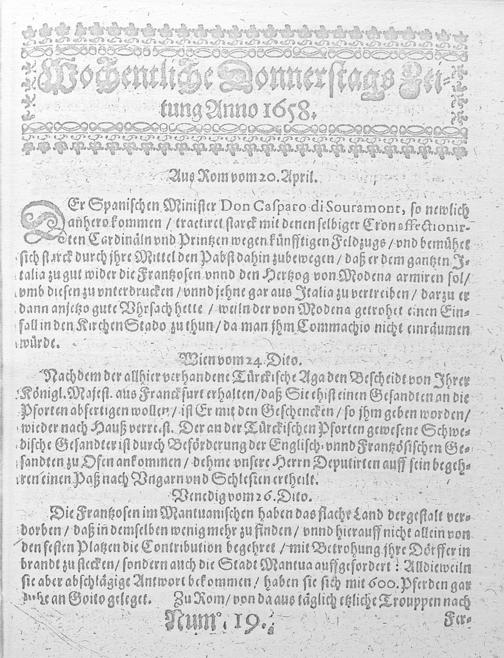 Wochentliche Donnerstags Zei-
tung Anno 1658.
Aus Rom vom 20. April.
DEr Spanischen Minister Don Casparo di Souramont, so newlich
anhero kommen / tractiret starck mit denen selbiger Cron affectionir-
ten Cardinäln vnd Printzen wegen künfftigen Feldzugs / vnd bemühet
sich starck durch ihre Mittel den Pabst dahin zubewegen / daß er dem gantzen I-
talia zu gut wider die Frantzosen vnnd den Hertzog von Modena armiren sol /
vmb diesen zu vnterdrucken / vnnd jehne gar aus Italia zu vertreiben / darzu er
dann anjetzo gute Vhrsach hette / weiln der von Modena getrohet einen Ein-
fall in den Kirchen Stado zu thun / da man jhm Commachio nicht einräumen
würde.
Wien vom 24. Dito.
Nachdem der allhier verhandene Türckische Aga den Bescheidt von Ihrer
Königl. Majest. aus Franckfurt erhalten / daß Sie ehist einen Gesandten an die
Pforten abfertigen wollen / ist Er mit den Geschencken / so jhm geben worden /
wieder nach Hauß verreist. Der an der Türckischen Pforten gewesene Schwe-
dische Gesandter ist durch Beförderung der Englisch- vnnd Frantzösischen Ge-
sandten zu Ofen ankommen / dehme vnsere Herrn Deputirten auff sein begeh-
ren einen Paß nach Vngarn vnd Schlesien ertheilt.
Venedig vom 26. Dito.
Die Frantzosen im Mantuanischen haben das flache Land dergestalt ver-
dorben / daß in demselben wenig mehr zu finden / vnnd hierauff nicht allein von
den festen Platzen die Contribution begehret / mit Betrohung ihre Dörffer in
brandt zu stecken / sondern auch die Stadt Mantua auffgefordert : Alldieweiln
sie aber abschlägige Antwort bekommen / haben sie sich mit 600. Pferden gar
nahe an Goito geleget. Zu Rom / von da aus täglich etzliche Trouppen nach
Num. 19. Fer-